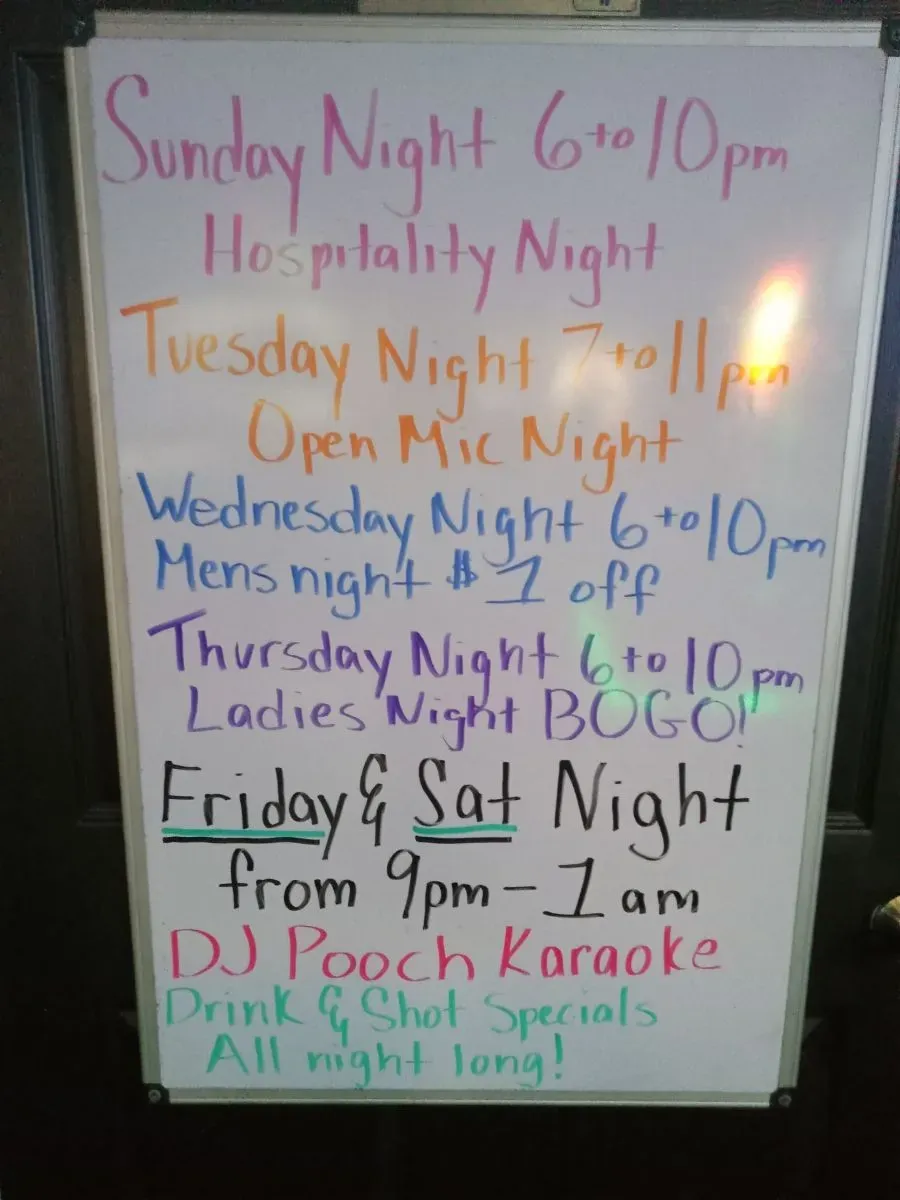 Sunday Night 6 to 10pm
Hospitality Night
Tuesday Night 7 to 11pm
Open Mic Night
Wednesday Night 6 to 10pm
Mens night $1 off
Thursday Night 6 to 10pm
Ladies Night BOGO!
Friday & Sat Night
from 9pm - 1am
DJ Pooch Karaoke
Drink & Shot Specials
All night long!